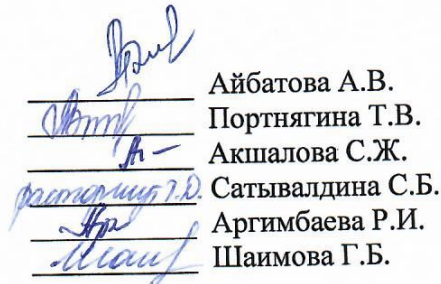 Айбатова А.В.
Портнягина Т.В.
Акшалова С.Ж.
Сатывалдина С.Б.
Аргимбаева Р.И.
Шаимова Г.Б.